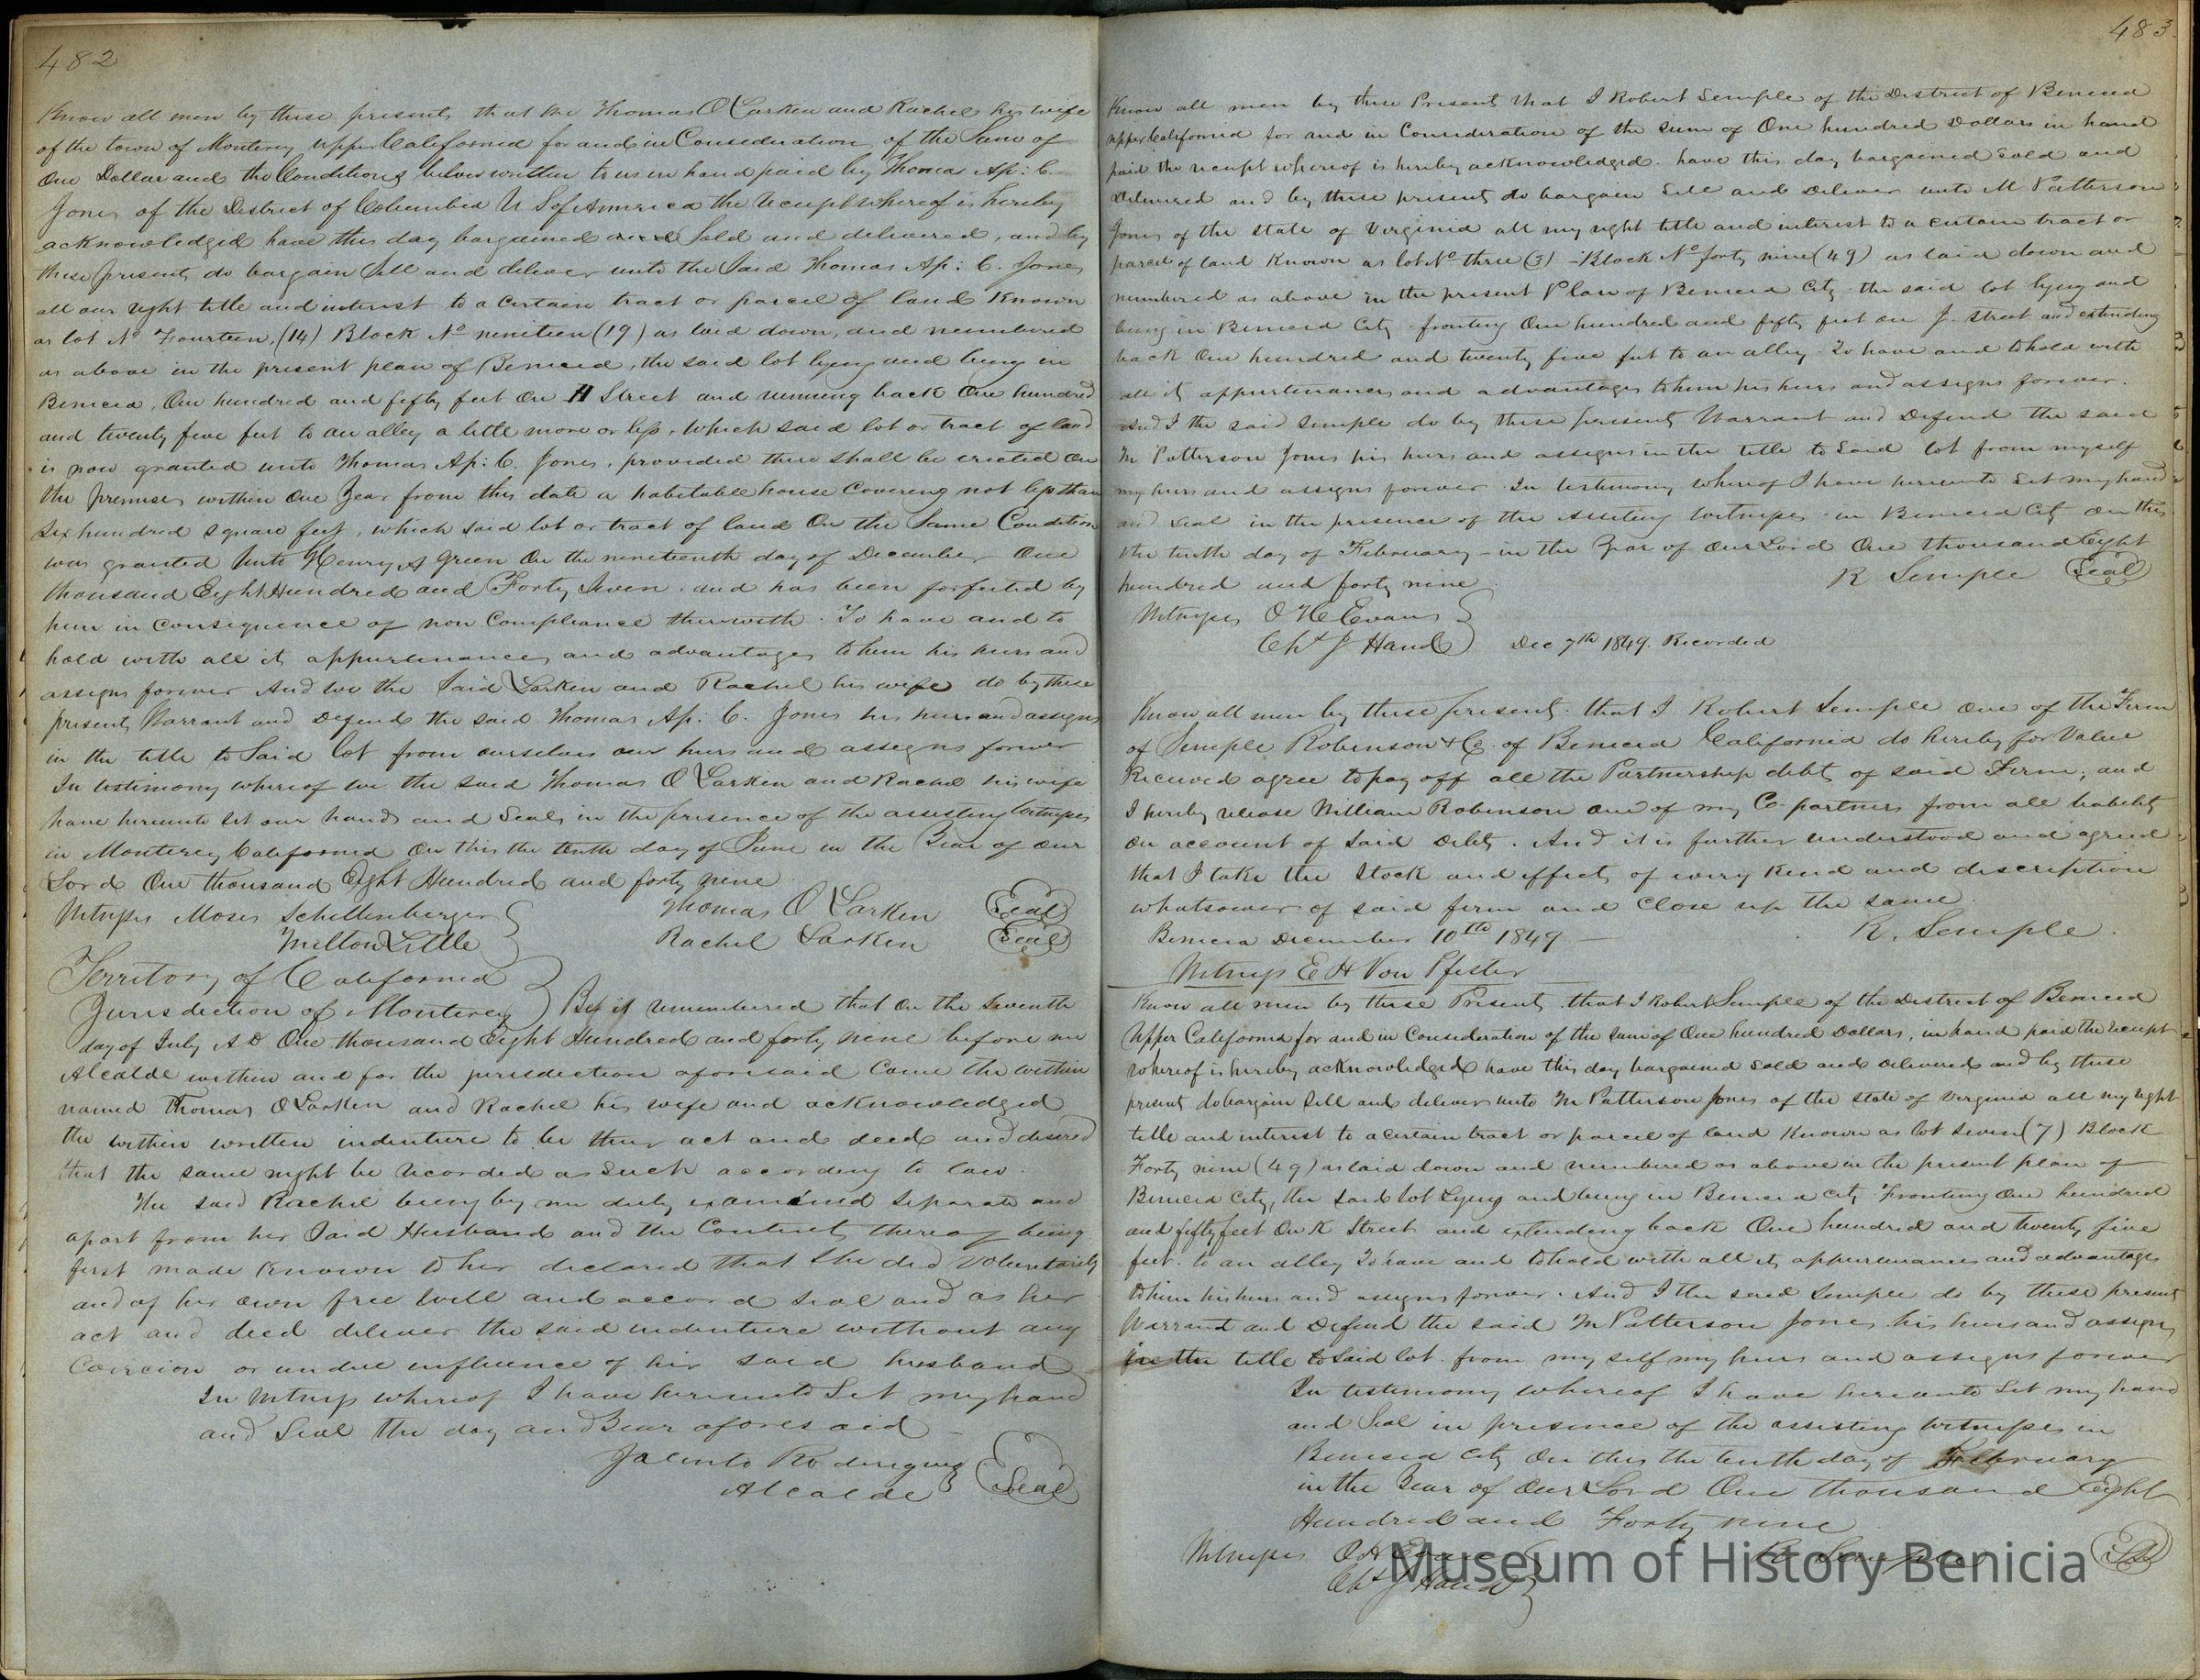 482
Know all men by these presents that we Thomas O Larken and Rachel his wife
of the town of Monterey upper California for and in Consideration of the Sum of
One Dollar and the Conditions below written to us in hand paid by Thomas Ap: C.
Jones of the District of Columbia U S of America the receipt whereof is hereby
acknowledged have this day bargained and Sold and delivered, and by
these presents do bargain Sell and deliver unto the Said Thomas Ap: C. Jones
all our right title and interest to a certain tract or parcel of land Known
as lot No Fourteen, (14) Block No nineteen (19) as laid down, and numbered
as above in the present plan of Benicia, the said lot lying and being in
Benicia, One hundred and fifty feet on H Street and running back One hundred
and twenty five feet to an alley a little more or less, which said lot or tract of land
is now granted unto Thomas Ap: C. Jones, provided there shall be erected on
the premises within One Year from this date a habitable house Covering not less than
Six hundred square feet, which said lot or tract of land On the Same Condition
was granted Unto Henry A Green On the nineteenth day of December One
thousand Eight Hundred and Forty Seven. and has been forfeited by
him in consequence of non Compliance therewith. To have and to
hold with all its appurtenances and advantages to him his heirs and
assigns forever And we the Said Larken and Rachel his wife do by these
presents Warrant and Defend the said Thomas Ap: C. Jones his heirs and assigns
in the title to Said lot from ourselves our heirs and assigns forever
In testimony whereof we the said Thomas O Larken and Rachel his wife
have hereunto set our hands and Seals in the presence of the assisting Witnesses
in Monterey California On this the tenth day of June in the Year of our
Lord One thousand Eight Hundred and forty nine
Witnesses Moses Schellenberger Thomas O Larken Seal
Milton Little Rachel Larken Seal
Territory of California
Jurisdiction of Monterey Be it remembered that On the Seventh
day of July A D One thousand Eight Hundred and forty nine before me
Alcalde within and for the jurisdiction aforesaid Came the within
named Thomas O Larken and Rachel his wife and acknowledged
the within written indenture to be their act and deed and desired
that the same might be recorded as Such according to law.
The said Rachel being by me duly examined Separate and
apart from her Said Husband and the Contents thereof being
first made Known to her declared that She did Voluntarily
and of her own free Will and accord Seal and as her
act and deed deliver the said indenture without any
Coercion or undue influence of her said husband
In Witness whereof I have hereunto Set my hand
and Seal the day and Year aforesaid
Jacinto Roderiguez
Alcalde Seal
483
Know all men by these Presents that I Robert Semple of the District of Benicia
upper California for and in Consideration of the sum of One hundred Dollars in hand
paid the receipt whereof is hereby acknowledged. have this day bargained Sold and
Delivered and by these presents do bargain Sell and Deliver unto M Patterson
Jones of the state of Virginia all my right title and interest to a certain tract or
parcel of land Known as lot No three (3) - Block No forty nine (49) as laid down and
numbered as above in the present Plan of Benicia City the said lot lying and
being in Benicia City fronting One hundred and fifty feet on J. Street and extending
back One hundred and twenty five feet to an alley. To have and to hold with
all its appurtenances and advantages to him his heirs and assigns forever.
And I the said Semple do by these presents Warrant and Defend the said
M Patterson Jones his heirs and assigns in the title to Said lot from myself
my heirs and assigns forever. In testimony whereof I have hereunto Set my hand
and Seal in the presence of the Assisting Witnesses in Benicia City on this
the tenth day of February - in the Year of Our Lord One thousand Eight
hundred and forty nine. R Semple Seal
Witnesses O H Evans
Chs J Hand Dec 7th 1849. Recorded
Know all men by these presents. that I Robert Semple one of the Firm
of Semple Robinson & Co. of Benicia California do hereby for Value
Received agree to pay off all the Partnership debts of said Firm; and
I hereby release William Robinson one of my Co partners from all liability
on account of Said Debts. And it is further understood and agreed
that I take the Stock and effects of every Kind and discription
whatsoever of said firm and Close up the same.
Benicia December 10th 1849 R. Semple.
Witness E H Von Pfister
Know all men by these Presents. that I Robert Semple of the District of Benicia
Upper California for and in Consideration of the sum of One hundred Dollars, in hand paid the receipt
whereof is hereby acknowledged have this day bargained Sold and Delivered and by these
presents do bargain Sell and deliver unto M Patterson Jones of the state of Virginia all my right
title and interest to a certain tract or parcel of land Known as lot Seven (7) Block
Forty nine (49) as laid down and numbered as above in the present plan of
Benicia City, the Said lot Lying and being in Benicia City Fronting One hundred
and fifty feet On K Street and extending back One hundred and twenty five
feet. to an alley To have and to hold with all its appurtenances and advantages
to him his heirs and assigns forever. And I the said Semple do by these presents
Warrant and Defend the said M Patterson Jones his heirs and assigns
in the title to Said lot. from my self my heirs and assigns forever
In testimony whereof I have hereunto Set my hand
and Seal in presence of the assisting Witnesses in
Benicia City On this the tenth day of February
in the Year of Our Lord One thousand Eight
Hundred and Forty nine
Witnesses O H Evans R Semple Seal
Chs J Hand
Museum of History Benicia